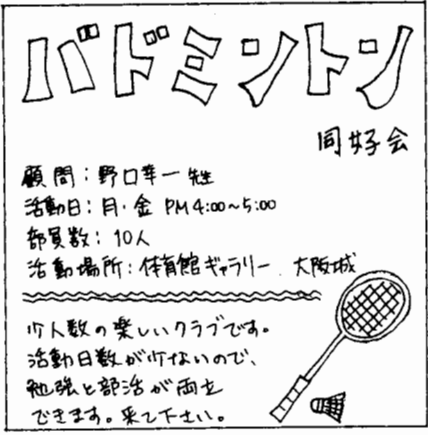 バドミントン
同好会
顧問：野口幸一先生
活動日：月・金 PM4:00〜5:00
部員数：10人
活動場所：体育館ギャラリー、大阪城
少人数の楽しいクラブです。
活動日数が少ないので、
勉強と部活が両立
できます。来て下さい。